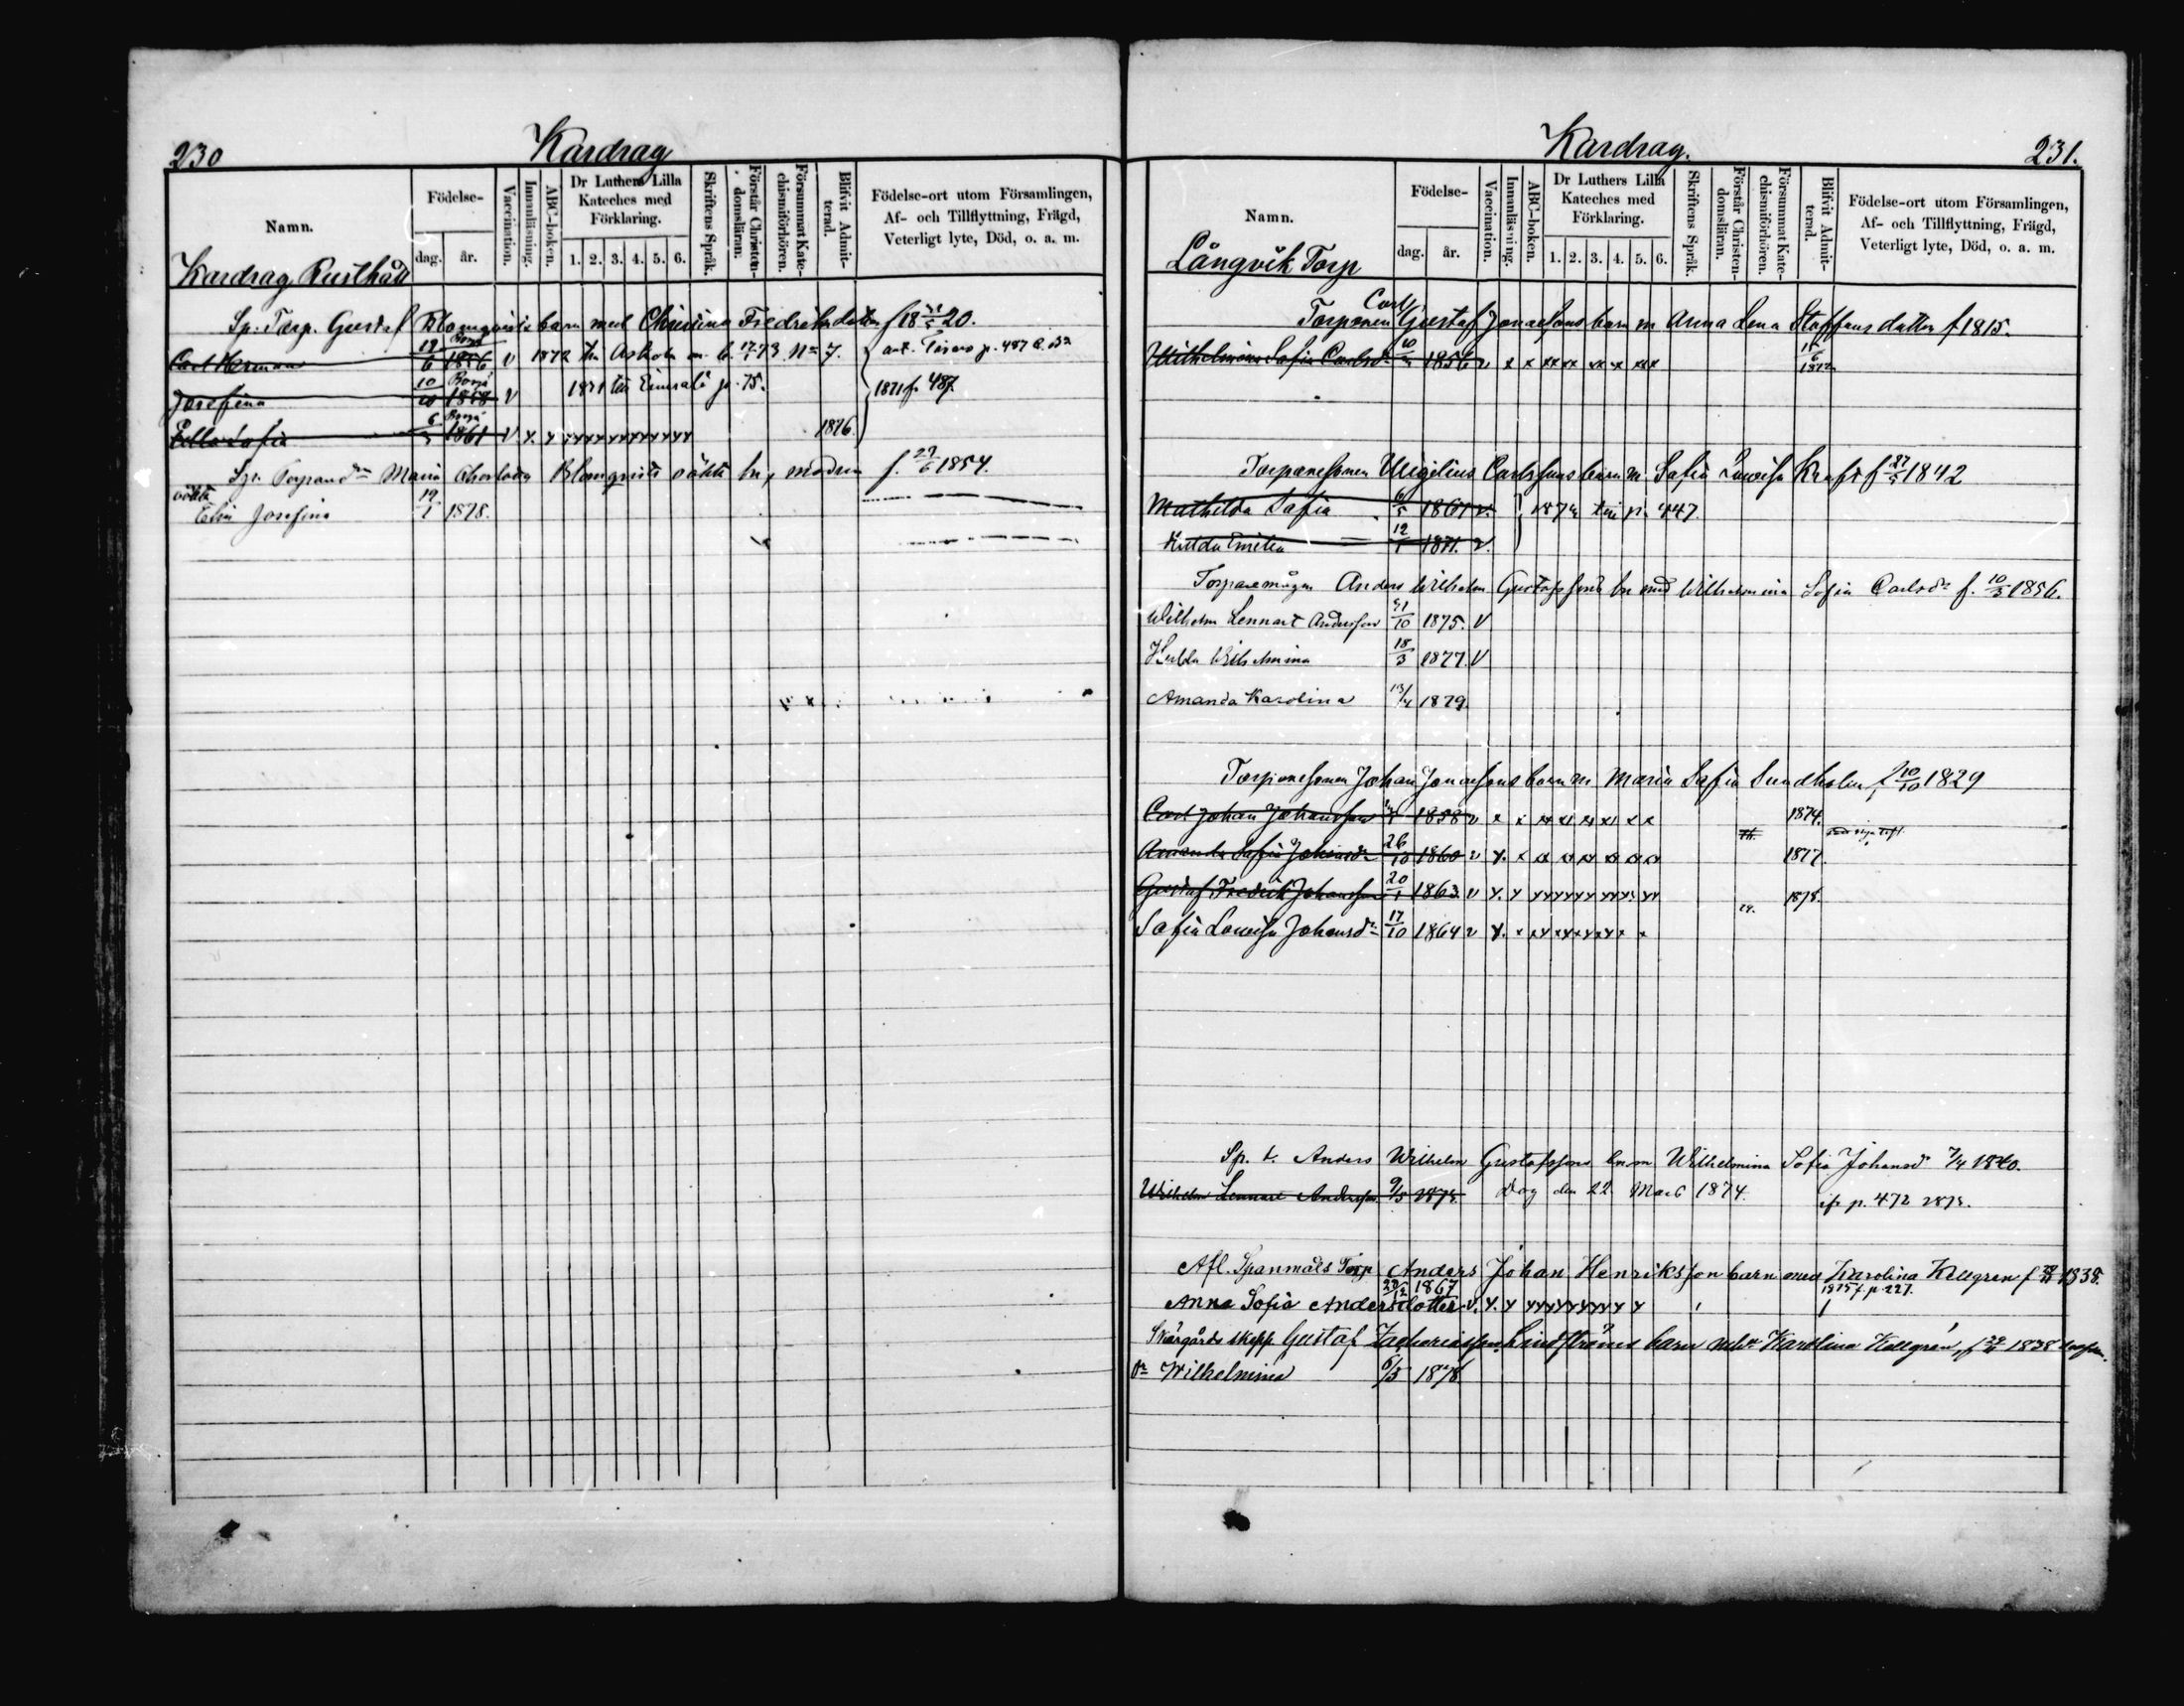 230
Kardrag
Namn.
Födelse-
dag.
år.
Vaccination.
Innanläsning.
ABC-boken.
Dr Luthers Lilla
Kateches med
Förklaring.
1. 2. 3. 4. 5. 6.
Skriftens Språk.
Förstår Christen-
domsläran.
Försummat Kate-
chismiförhören.
Blifvit Admit-
terad.
Födelse-ort utom Församlingen,
Af- och Tillflyttning, Frägd,
Veterligt lyte, Död, o. a. m.
Kardrag Rusthåll
Sp. Torp. Gustaf Blomqvists barn med Christina Fredriksdotter f 18 20.
Carl Herman 6 1856 v 1872 till Askola 73 No 7. p. 487
Josefina 10/10 Borgå 1858 v 1871 till p. 75. 1871 fr. 487
Ulla Sofia 6 Borgå 1861 v x x xxxxxxxxxxxx 1876.
Maria Charlotta Blomqvists oäkta bn, modren f. 29/6 1854.
oäkta
Elin Josefina 19/1 1878.
231.
Kardrag.
Namn.
Födelse-
dag.
år.
Vaccination.
Innanläsning.
ABC-boken.
Dr Luthers Lilla
Kateches med
Förklaring.
1. 2. 3. 4. 5. 6.
Skriftens Språk.
Förstår Christen-
domsläran.
Försummat Kate-
chismiförhören.
Blifvit Admit-
terad.
Födelse-ort utom Församlingen,
Af- och Tillflyttning, Frägd,
Veterligt lyte, Död, o. a. m.
Långvik Torp
Carl
Torparen Gustaf Jonassons barn m Anna Lena Staffans datter f 1815.
Wilhelmina Sofia Carlsdr 10 1856 v x x xx xx xx x xxx
Torparesonen Wigelius Carlssons barn m. Sofia Lowisa Kraft f 27/5 1842
Mathilda Sofia 6/5 1861 v. 187 till p. 447.
Hulda Emilia 12/1 1871. v.
Torparemågen Anders Wilhelm Gustafssons bn med Wilhelmina Sofia Carlsdr f. 10/3 1856.
Wilhelm Lennart Andersson 31/10 1875. V
Hulda Wilhelmina 18/3 1877. V
Amanda Karolina 13/4 1879.
Torparesonen Johan Jonassons barn m Maria Sofia Sundholm f 10/10 1829
Carl Johan Johansson 1858 v x x xx xx xx xx x x 1874.
Amanda Sofia Johansdr 26/10 1860 v x. x xx xx xx xx xx xx 1877.
Gustaf Fredrik Johansson 20/1 1863 v x. x xxxxxxxx xxxx xx 1878.
Sofia Lowisa Johansdr 17/10 1864 v x. x xx xxxxxxxx x x
Sp. t. Anders Wilhelm Gustafssons bn m Wilhelmina Sofia Johansd 7/4 1840.
Wilhelm Lennart Andersson 9/5 187 Dog den 22 Mars 1874. ifr p. 472 187
Afl. Spanmåls Torp Anders Johan Henriksson barn med Karolina Kellgren f 1838.
22/12 1867
1875 f. p. 227.
Anna Sofia Andersdotter v. x. x xxxxxxxxxxx x
Skärgårds skepp Gustaf Zachariasson Lindströms barn med Karolina Kellgren, f 1838
Dr Wilhelmina 6/5 1878.